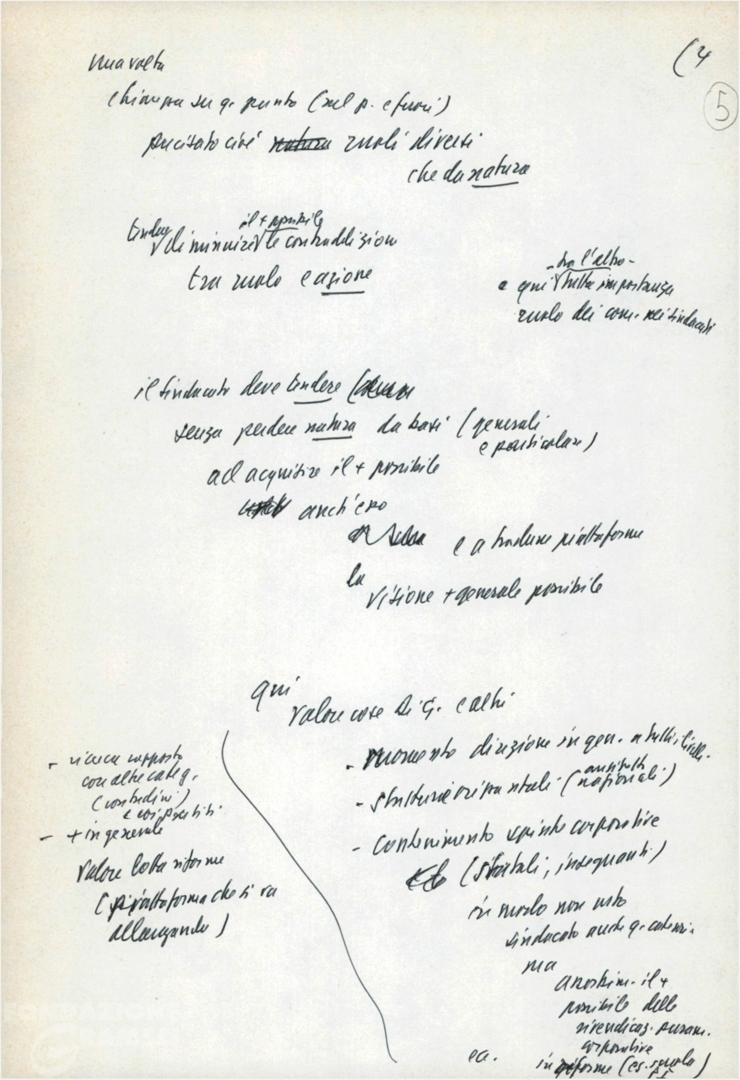 (4
5
una volta
chiarezza su q. punto (sul p. e fuori)
precisato cioè natura ruoli diversi
che da natura
tendere
il + possibile
diminuire le contraddizioni
tra ruolo e azione
- tra l'altro -
e qui tutta importanza
ruolo dei com. nei sindacati
il sindacato deve tendere
senza perdere natura da basi (generali
e particolari)
ad acquisire il + possibile
anch'esso
e a tradurre piattaforme
la
visione + generale possibile
qui
valore cose di G. e altri
- momento direzione in gen. a tutti i livelli
- strutture orizzontali (
nazionali)
- contenimento spinte corporative
(statali, insegnanti)
in modo non
sindacato anche q. categorie
ma
il +
possibile delle
rivendicaz. puram.
corporative
ecc.
in riforme (es. scuola
- ricerca rapporto
con altre categ.
(contadini)
e coi partiti
- + in generale
valore lotta riforme
(piattaforma che si va
allargando)
FONDAZIONE